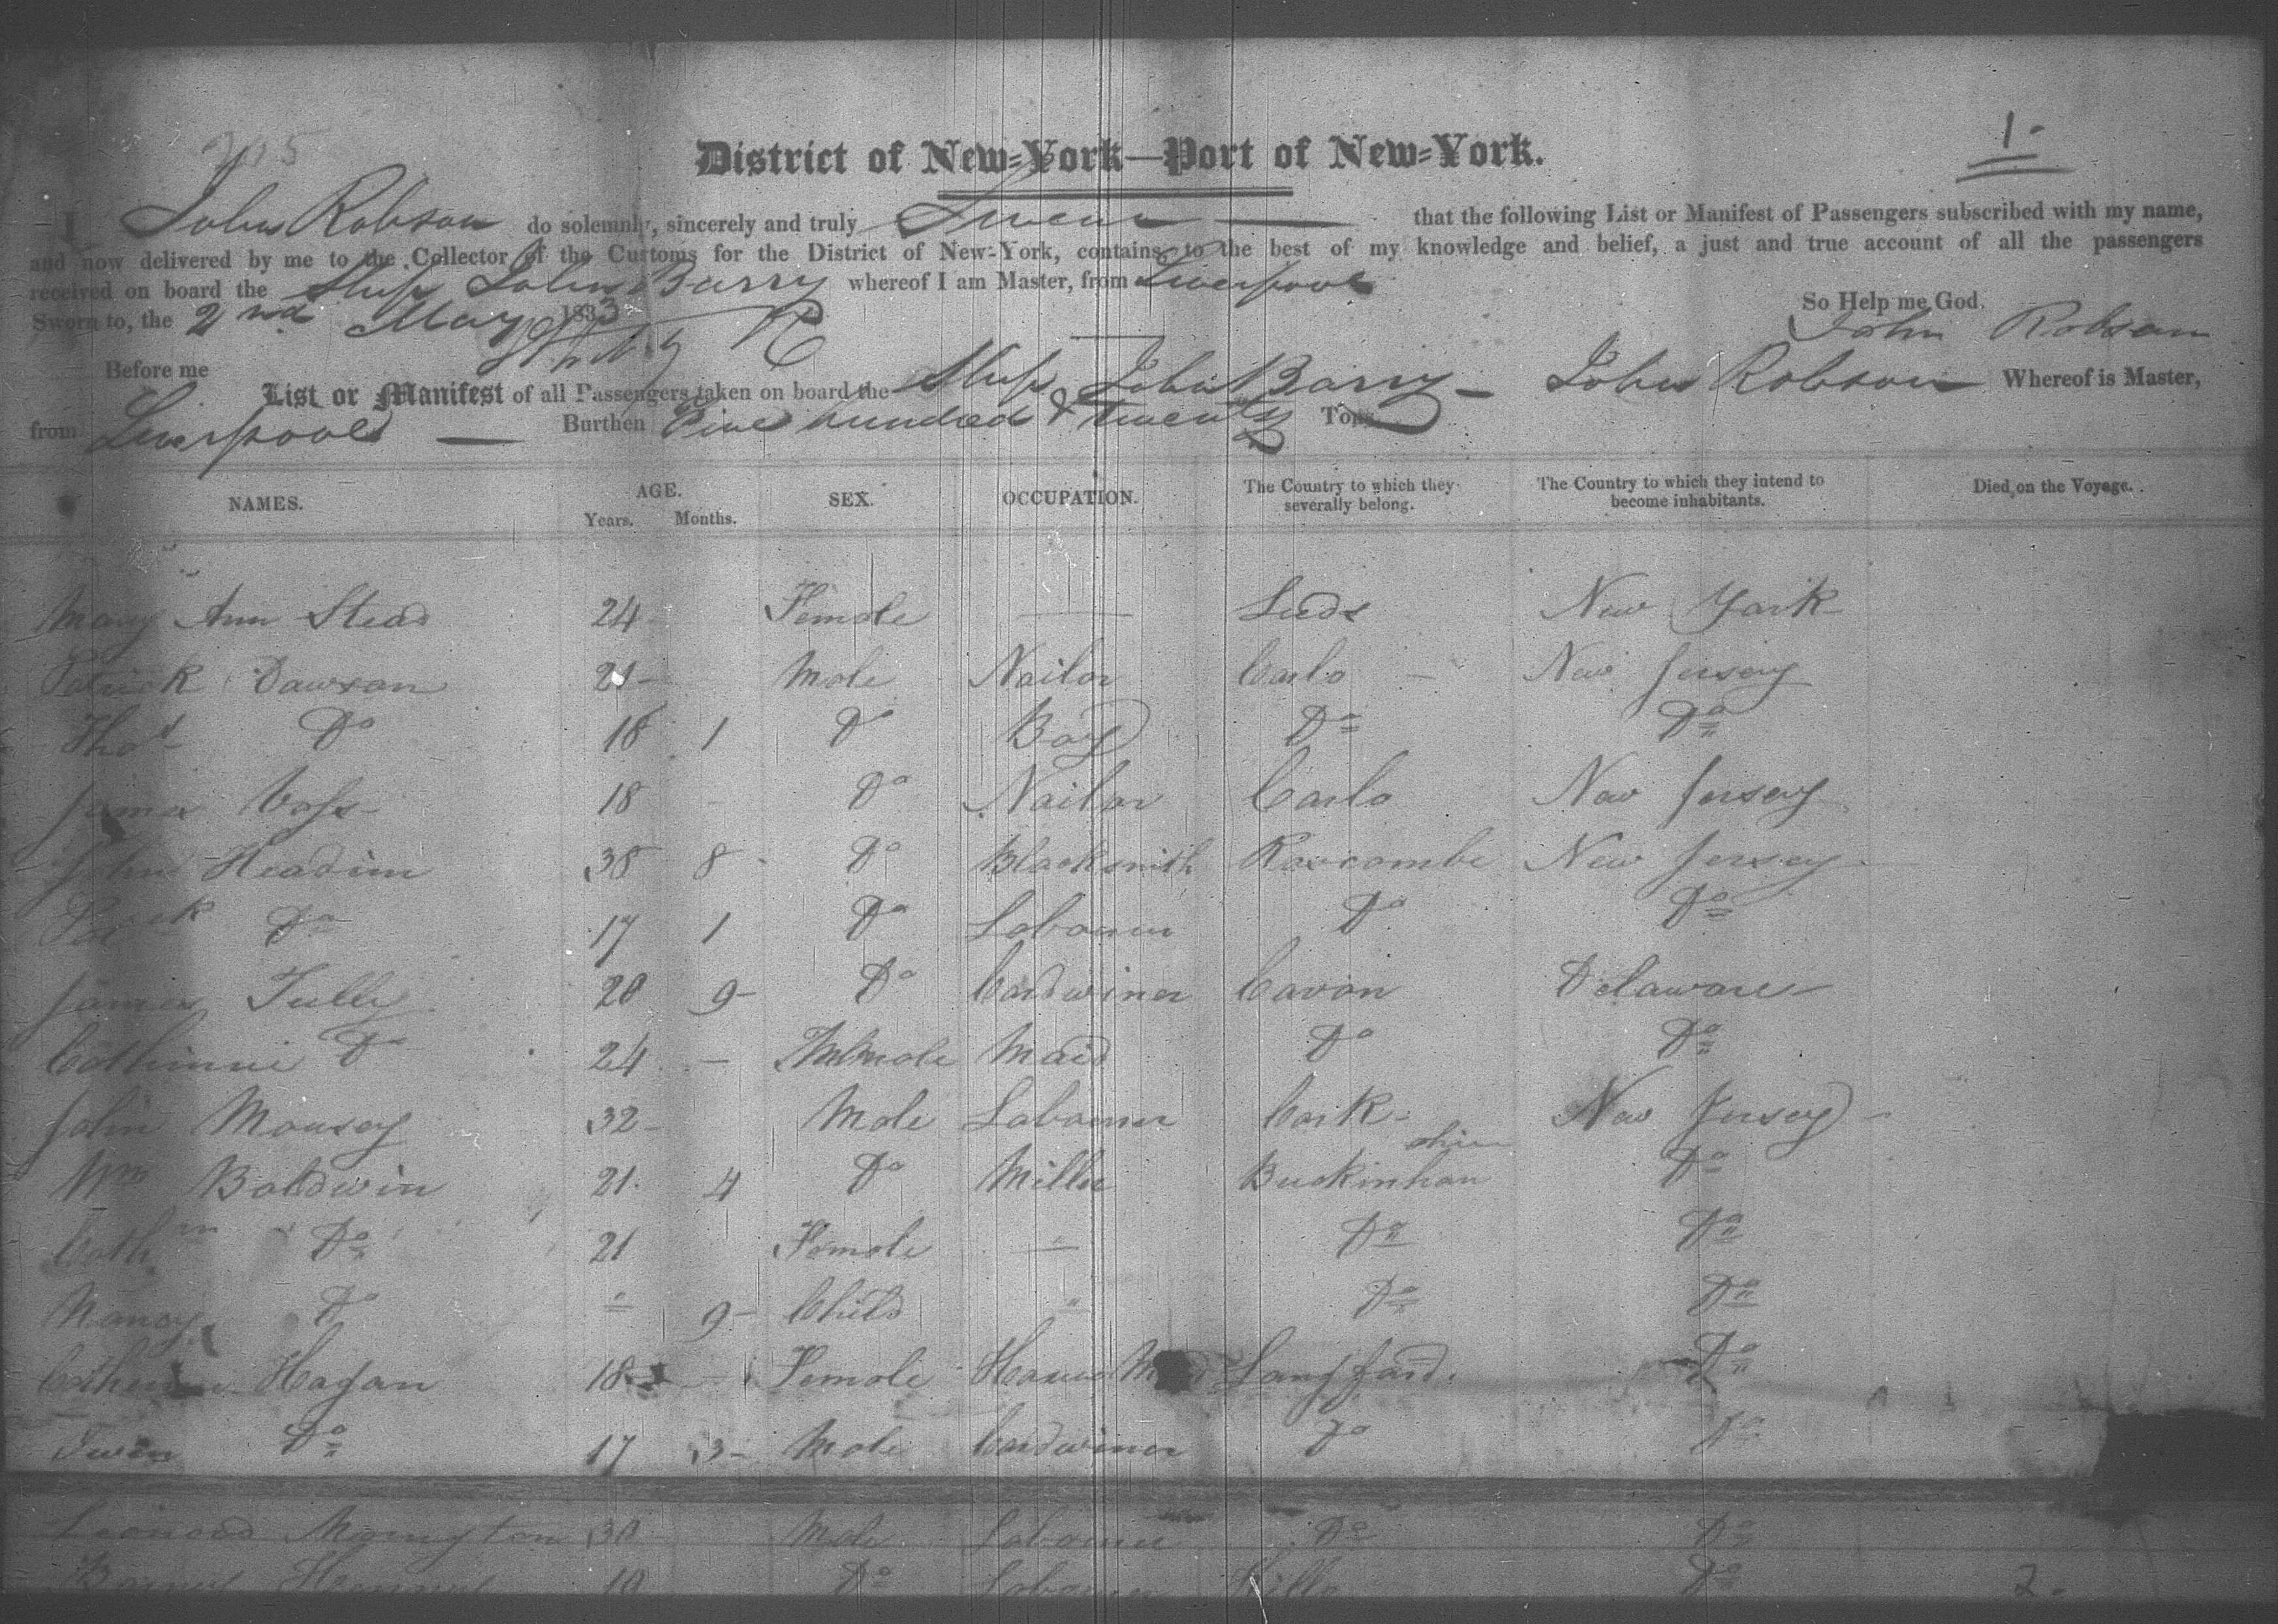 205
1.
District of New-York—Port of New-York.
I John Robson do solemnly, sincerely and truly Swear that the following List or Manifest of Passengers subscribed with my name,
and now delivered by me to the Collector of the Customs for the District of New-York, contains, to the best of my knowledge and belief, a just and true account of all the passengers
received on board the Ship John Barry whereof I am Master, from Liverpool
So Help me God.
Sworn to, the 2nd May 1833 John Robson
Before me
List or Manifest of all Passengers taken on board the Ship John Barry – John Robson Whereof is Master,
from Liverpool — Burthen Five hundred & twenty Tons
NAMES. AGE. Years. Months. SEX. OCCUPATION. The Country to which they severally belong. The Country to which they intend to become inhabitants. Died on the Voyage.
Mary Ann Stead 24 Female — Leeds New York
Patrick Dawson 21 – Male Nailor Carlo – New Jersey
Thos Do 18 1 Do Boy Do Do
James 18 - Do Nailor Carlo New Jersey
John Headin 38 8 Do Blacksmith Roscombe New Jersey
Patk Do 17 1 Do Labourer Do Do
James Tully 20 9 – Do Cordwiner Cavan Delaware –
Catherine Do 24 – Female Maid Do Do
John Mousey 32 – Male Labourer Cork – New Jersey –
Wm Baldwin 21 4 Do Miller Buckinhamshire Do
Cathrn Do 21 Female " Do Do
Nancy Do " 9 – Child " Do Do
Catherine Hagan 18 – Female House Maid Longford. Do
Owen Do 17 3 – Male Cordwiner Do Do
Leonard 30 Male Labourer Do Do
Do Labourer Do 2.